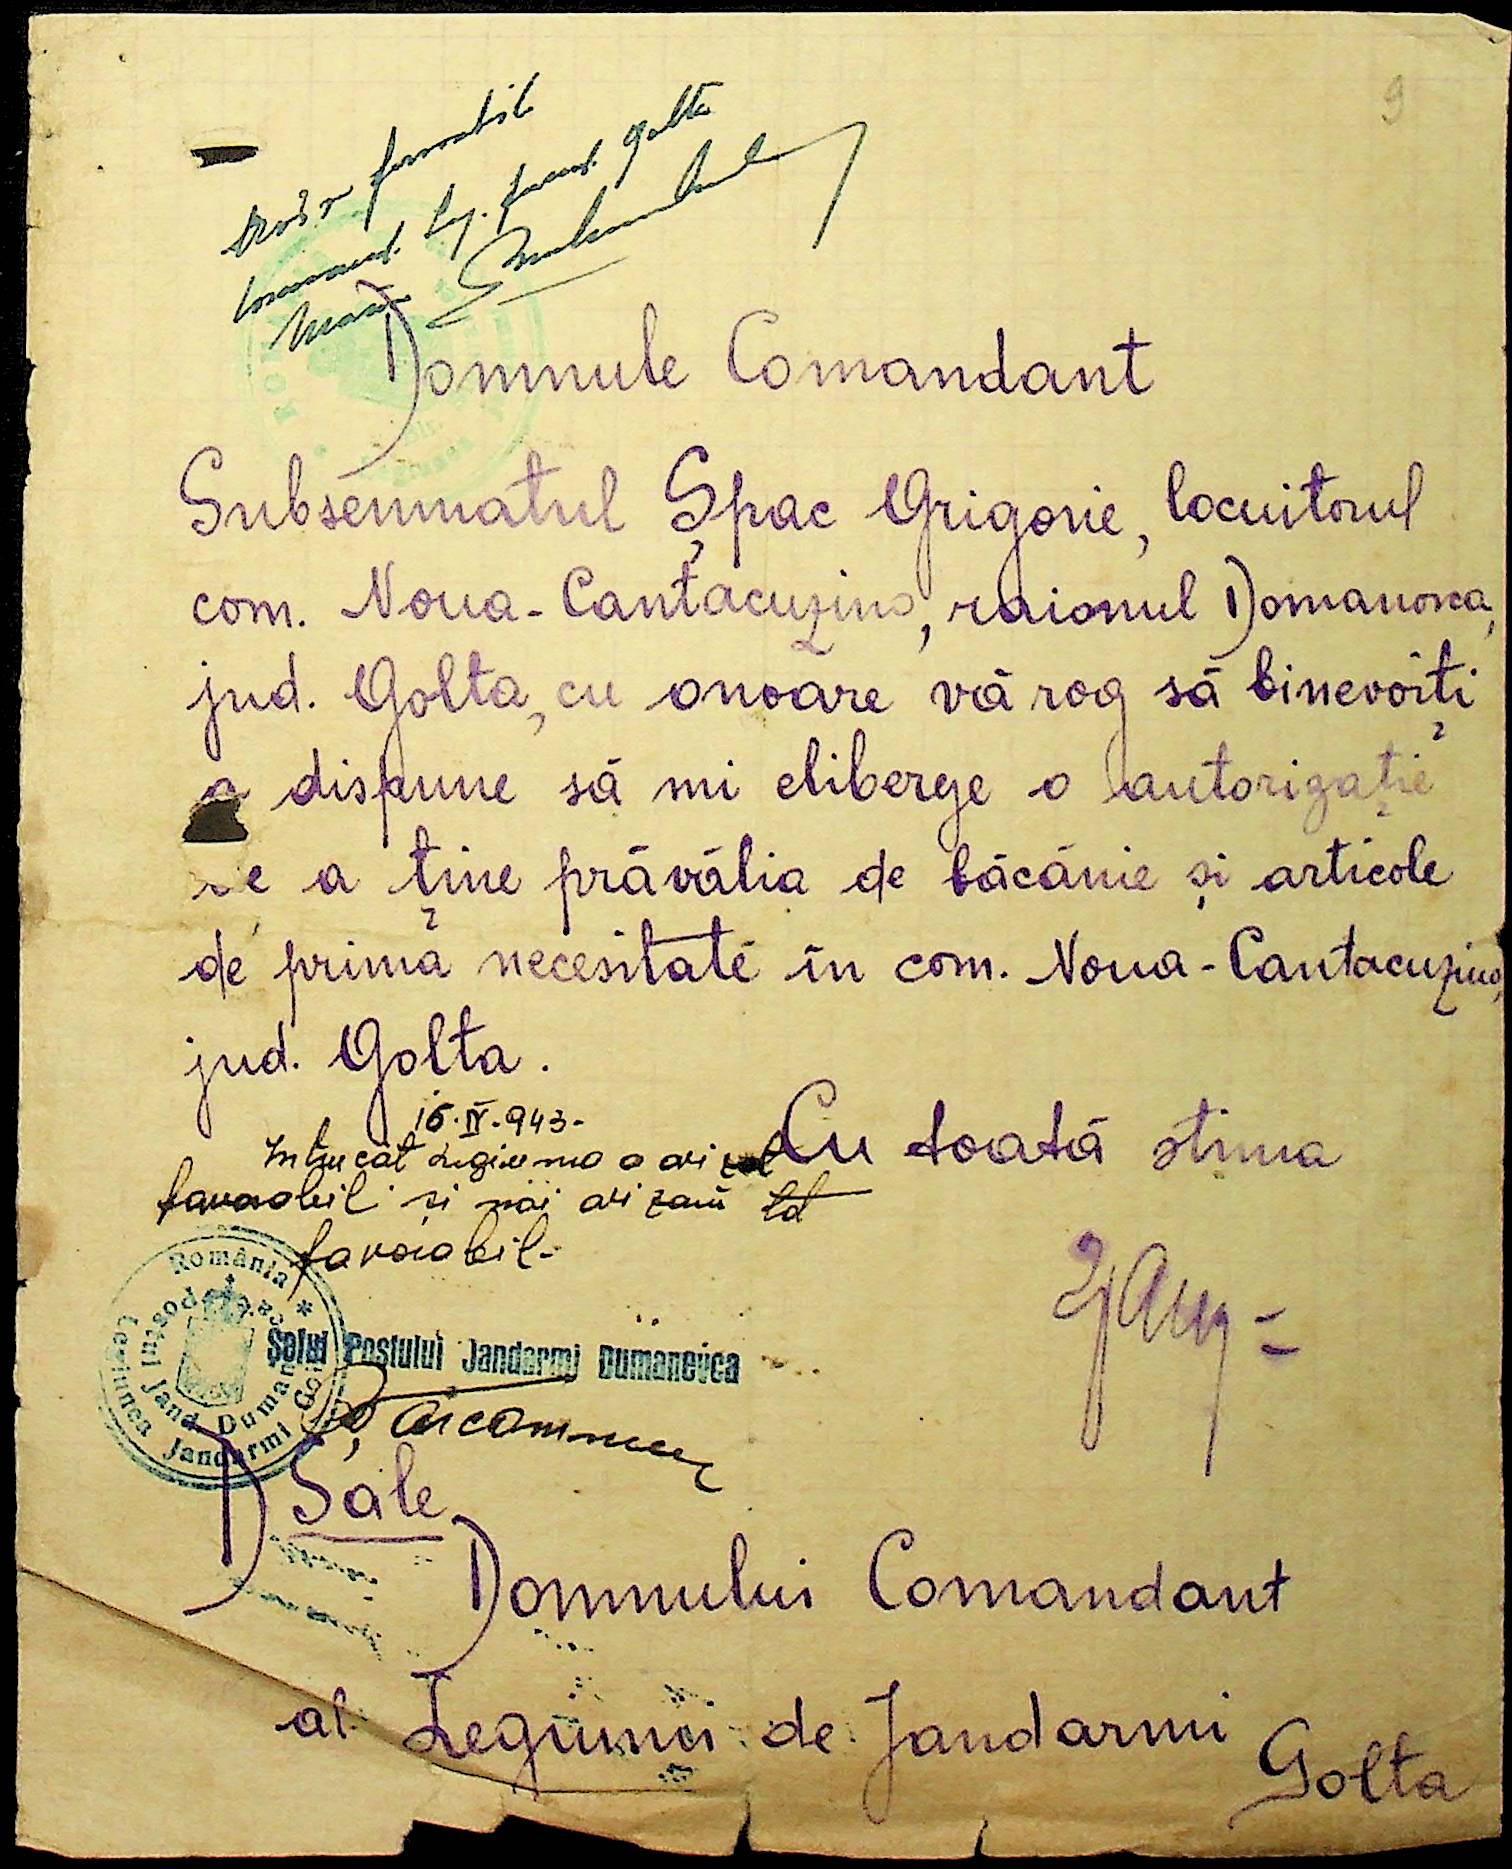 9
Aviz favorabil
Comand. Leg. Jand. Golta
Maior
Domnule Comandant
Subsemnatul Șpac Grigorie, locuitorul
com. Noua-Cantacuzino, raionul Domanovca,
jud. Golta, cu onoare vă rog să binevoiți
a dispune să mi eliberge o autorizație
de a ține prăvălia de băcănie și articole
de primă necesitate în com. Noua-Cantacuzino,
jud. Golta.
16.IV.943-
Intrucât Legiunea a avizat
favorabil și noi avizăm
favorabil-
Cu toată stima
România
Legiunea Jandarmi Golta
Postul Jand Duman
Șeful Postului Jandarmi Dumanevca
D Sale
Domnului Comandant
al Legiunii de Jandarmi
Golta